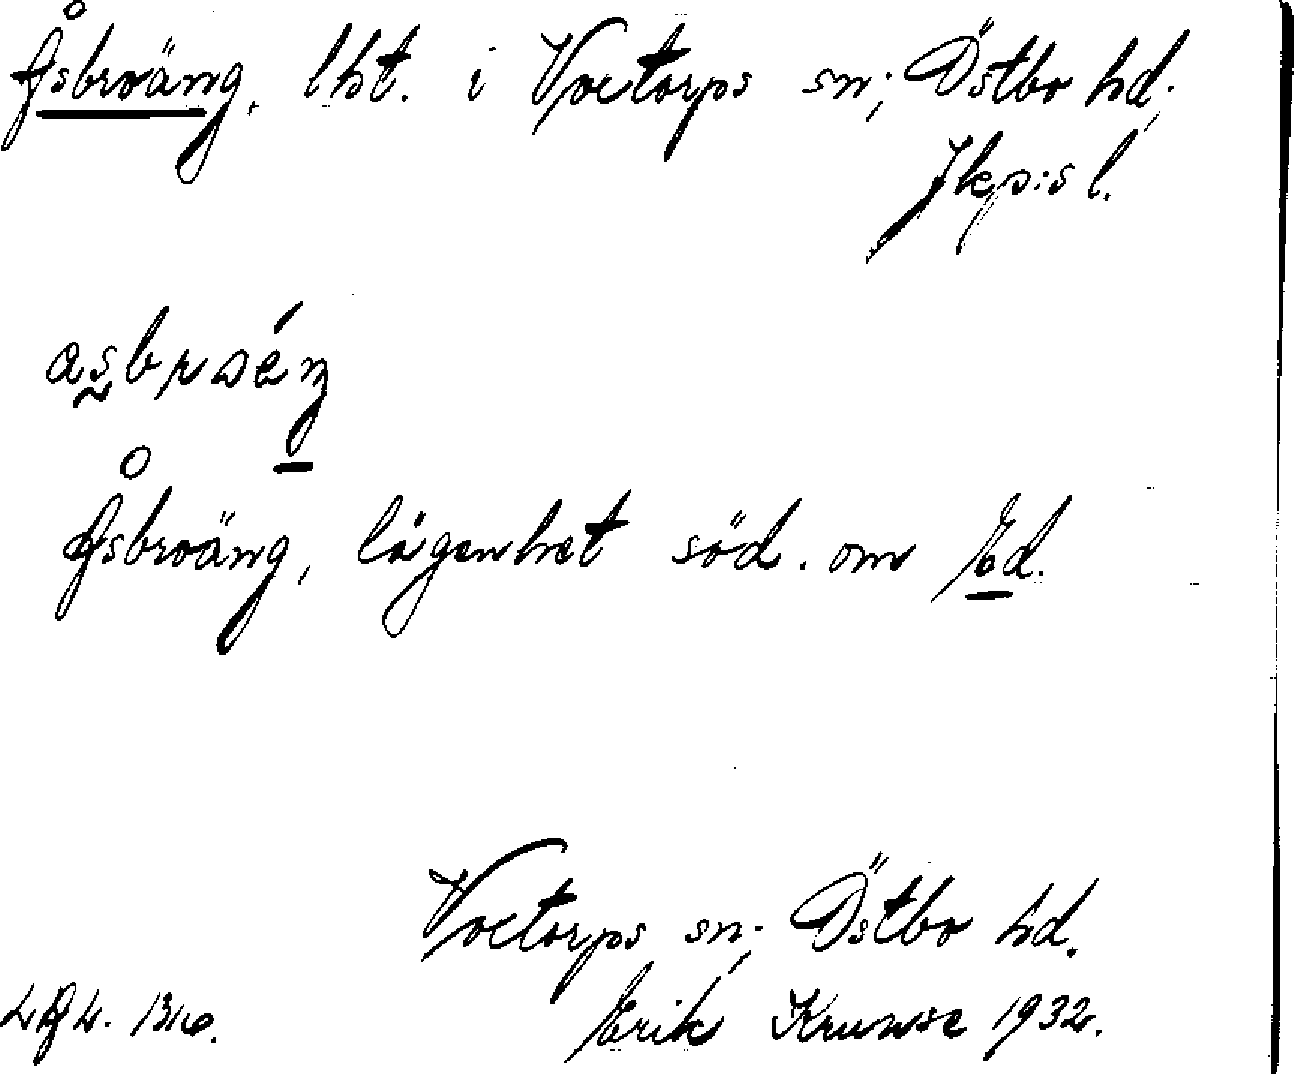 Åsbroäng, lht. i Voxtorps sn; Östbo hd;
Jkp:s l.
Åsbroäng, lägenhet söd. om Ed.
Voxtorps sn; Östbo hd.
Erik Krunse 1932.